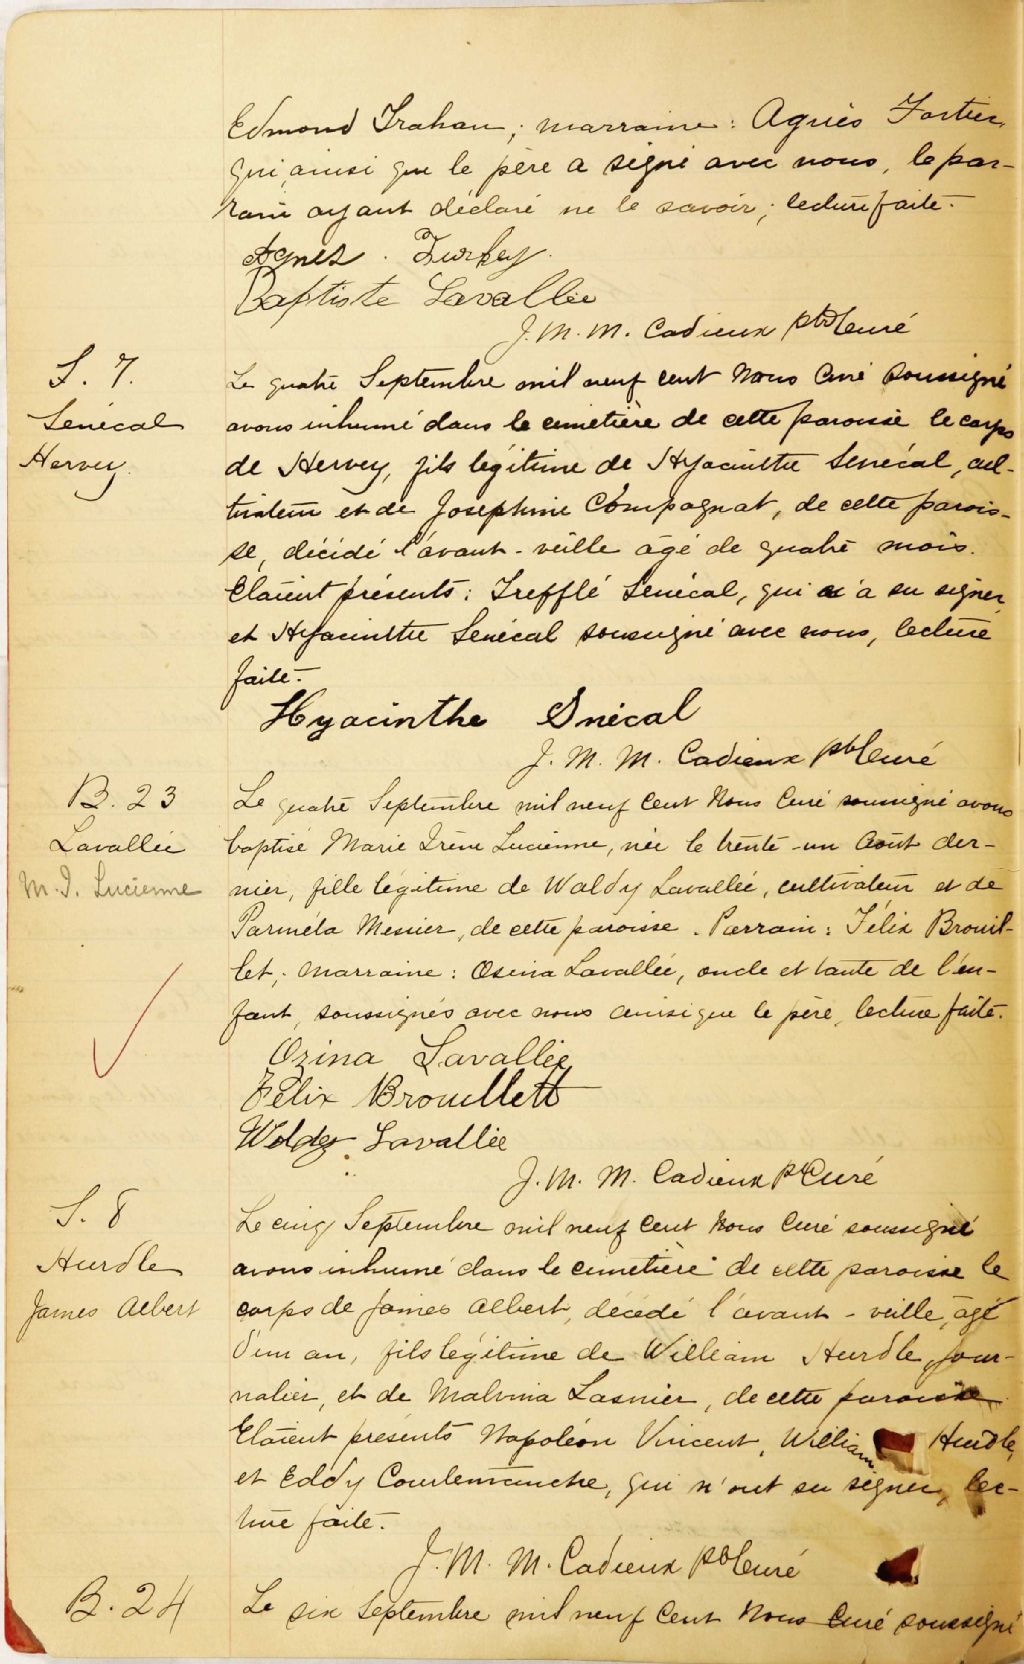 Edmond Trahan; marraine: Agnès Fortier,
qui, ainsi que le père a signé avec nous, le par-
rain ayant déclaré ne le savoir; lecture faite.
Agnes
Baptiste Lavallée
J. M. M. Cadieux ptre Curé
S. 7.
Sénécal
Hervey.
Le quatre Septembre mil neuf cent Nous Curé soussigné
avons inhumé dans le cimetière de cette paroisse le corps
de Hervey, fils légitime de Hyacinthe Senécal, cul-
tivateur et de Josephine Compagnat, de cette parois-
se, décédé l'avant-veille âgé de quatre mois.
Etaient présents: Trefflé Senécal, qui n'a su signer
et Hyacinthe Senécal soussigné avec nous, lecture
faite.
Hyacinthe Snécal
J. M. M. Cadieux ptre Curé
B. 23
Lavallée
M. I. Lucienne
Le quatre Septembre mil neuf cent Nous Curé soussigné avons
baptisé Marie Irène Lucienne, née le trente-un Août der-
nier, fille légitime de Waldy Lavallée, cultivateur et de
Parméla Messier, de cette paroisse. Parrain: Félix Brouil-
let; marraine: Osina Lavallée, oncle et tante de l'en-
fant, soussignés avec nous ainsi que le père, lecture faite.
Ozina Lavallée
Félix Brouillett
Woldy Lavallée
J. M. M. Cadieux ptre Curé
S. 8
Hurdle
James Albert
Le cinq Septembre mil neuf cent Nous Curé soussigné
avons inhumé dans le cimetière de cette paroisse le
corps de James Albert, décédé l'avant-veille, âgé
d'un an, fils légitime de William Hurdle, jour-
nalier, et de Malvina Lasnier, de cette paroisse.
Etaient présents Napoléon Vincent, William Hurdle,
et Eddy Courtemanche, qui n'ont su signer, lec-
ture faite.
J. M. M. Cadieux ptre Curé
B. 24
Le six Septembre mil neuf cent Nous Curé soussigné